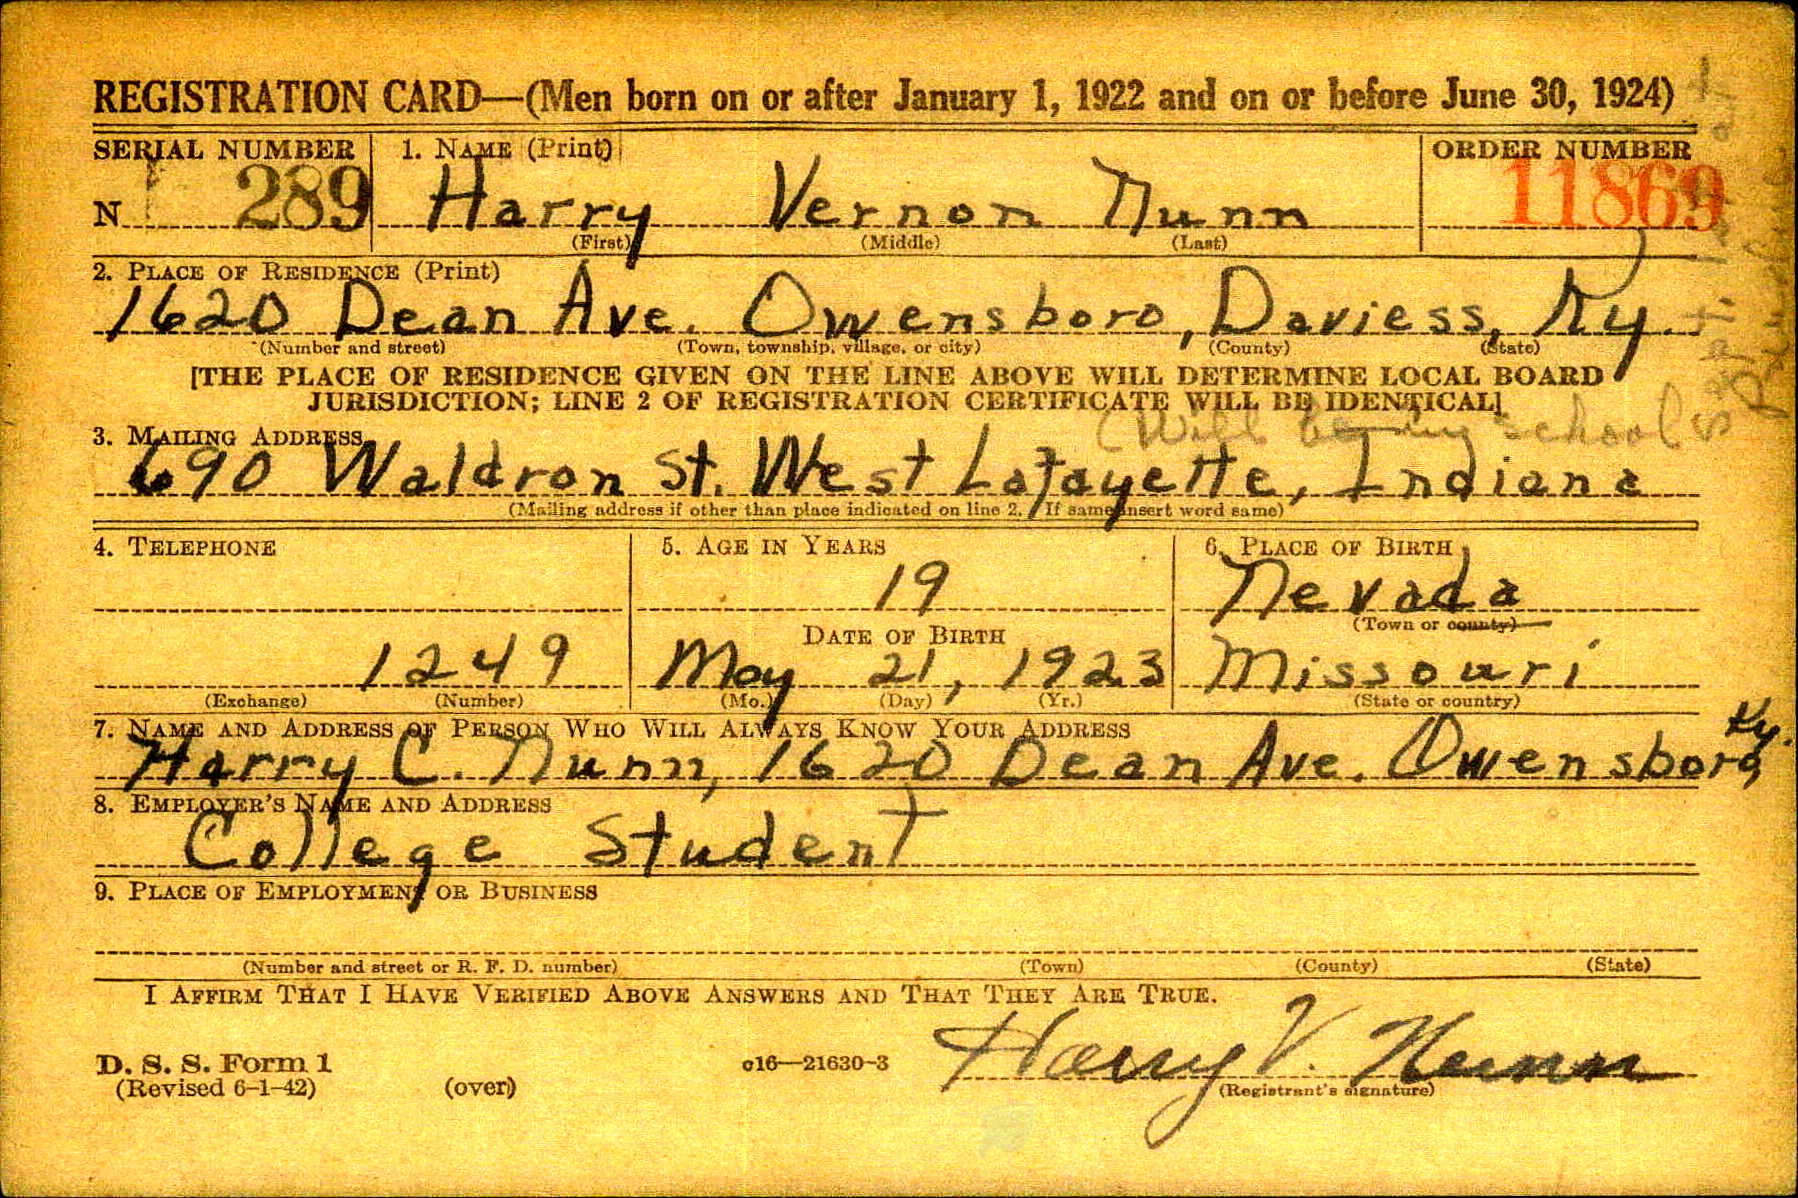 REGISTRATION CARD—(Men born on or after January 1, 1922 and on or before June 30, 1924)
SERIAL NUMBER 1. NAME (Print) ORDER NUMBER
N 289 Harry Vernon Nunn 11869
(First) (Middle) (Last)
2. PLACE OF RESIDENCE (Print)
1620 Dean Ave. Owensboro, Daviess, Ky.
(Number and street) (Town, township, village, or city) (County) (State)
[THE PLACE OF RESIDENCE GIVEN ON THE LINE ABOVE WILL DETERMINE LOCAL BOARD
JURISDICTION; LINE 2 OF REGISTRATION CERTIFICATE WILL BE IDENTICAL]
(Will be my school
Sept.
3. MAILING ADDRESS
690 Waldron St. West Lafayette, Indiana
(Mailing address if other than place indicated on line 2. If same insert word same)
4. TELEPHONE 5. AGE IN YEARS 6. PLACE OF BIRTH
19 Nevada
DATE OF BIRTH (Town or county)
1249 May 21, 1923 Missouri
(Exchange) (Number) (Mo.) (Day) (Yr.) (State or country)
7. NAME AND ADDRESS OF PERSON WHO WILL ALWAYS KNOW YOUR ADDRESS
Harry C. Nunn, 1620 Dean Ave. Owensboro, Ky.
8. EMPLOYER'S NAME AND ADDRESS
College Student
9. PLACE OF EMPLOYMENT OR BUSINESS
(Number and street or R. F. D. number) (Town) (County) (State)
I AFFIRM THAT I HAVE VERIFIED ABOVE ANSWERS AND THAT THEY ARE TRUE.
D. S. S. Form 1 c16—21630-3 Harry V. Nunn
(Revised 6-1-42) (over) (Registrant's signature)